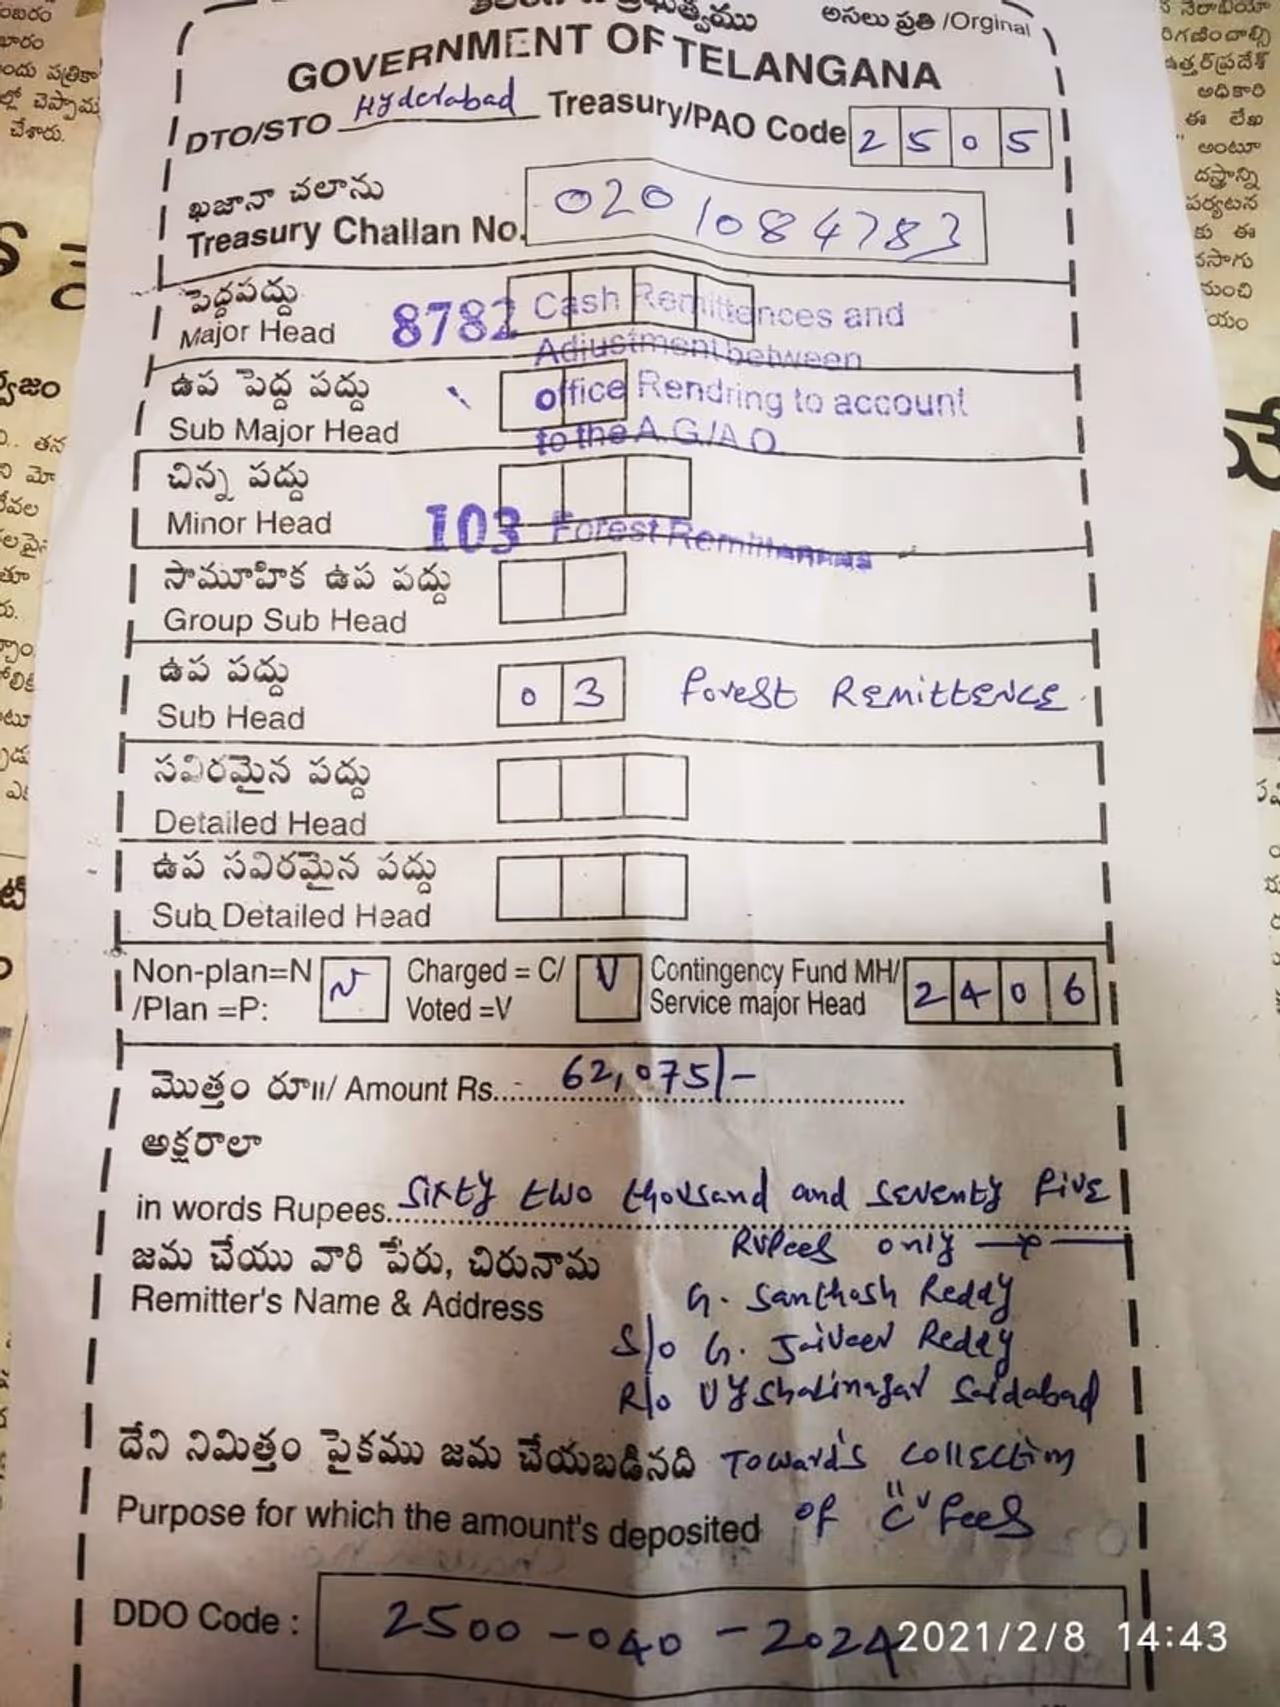 అసలు ప్రతి /Orginal
GOVERNMENT OF TELANGANA
DTO/STO Hyderabad Treasury/PAO Code 2505
ఖజానా చలాను
Treasury Challan No. 0201084783
పెద్దపద్దు
Major Head 8782 Cash Remittences and
Adjustment between
ఉప పెద్ద పద్దు
office Rendring to account
Sub Major Head
to the A.G./A.O
చిన్న పద్దు
Minor Head 103 Forest Remittances
సామూహిక ఉప పద్దు
Group Sub Head
ఉప పద్దు
Sub Head 03 Forest Remittence
సవిరమైన పద్దు
Detailed Head
ఉప సవిరమైన పద్దు
Sub Detailed Head
Non-plan=N N Charged = C/ V Contingency Fund MH/ 2406
/Plan =P: Voted =V Service major Head
మొత్తం రూ॥/ Amount Rs...... 62,075/-
అక్షరాలా
in words Rupees... Sixty two thousand and seventy five
Rupees only
జమ చేయు వారి పేరు, చిరునామ
Remitter's Name & Address G. Santhosh Reddy
S/o G. Jaiveer Reddy
R/o Vyshalinagar Saidabad
దేని నిమిత్తం పైకము జమ చేయబడినది Toward's collection
Purpose for which the amount's deposited of "C" fees
DDO Code : 2500-040-2024
2021/2/8 14:43